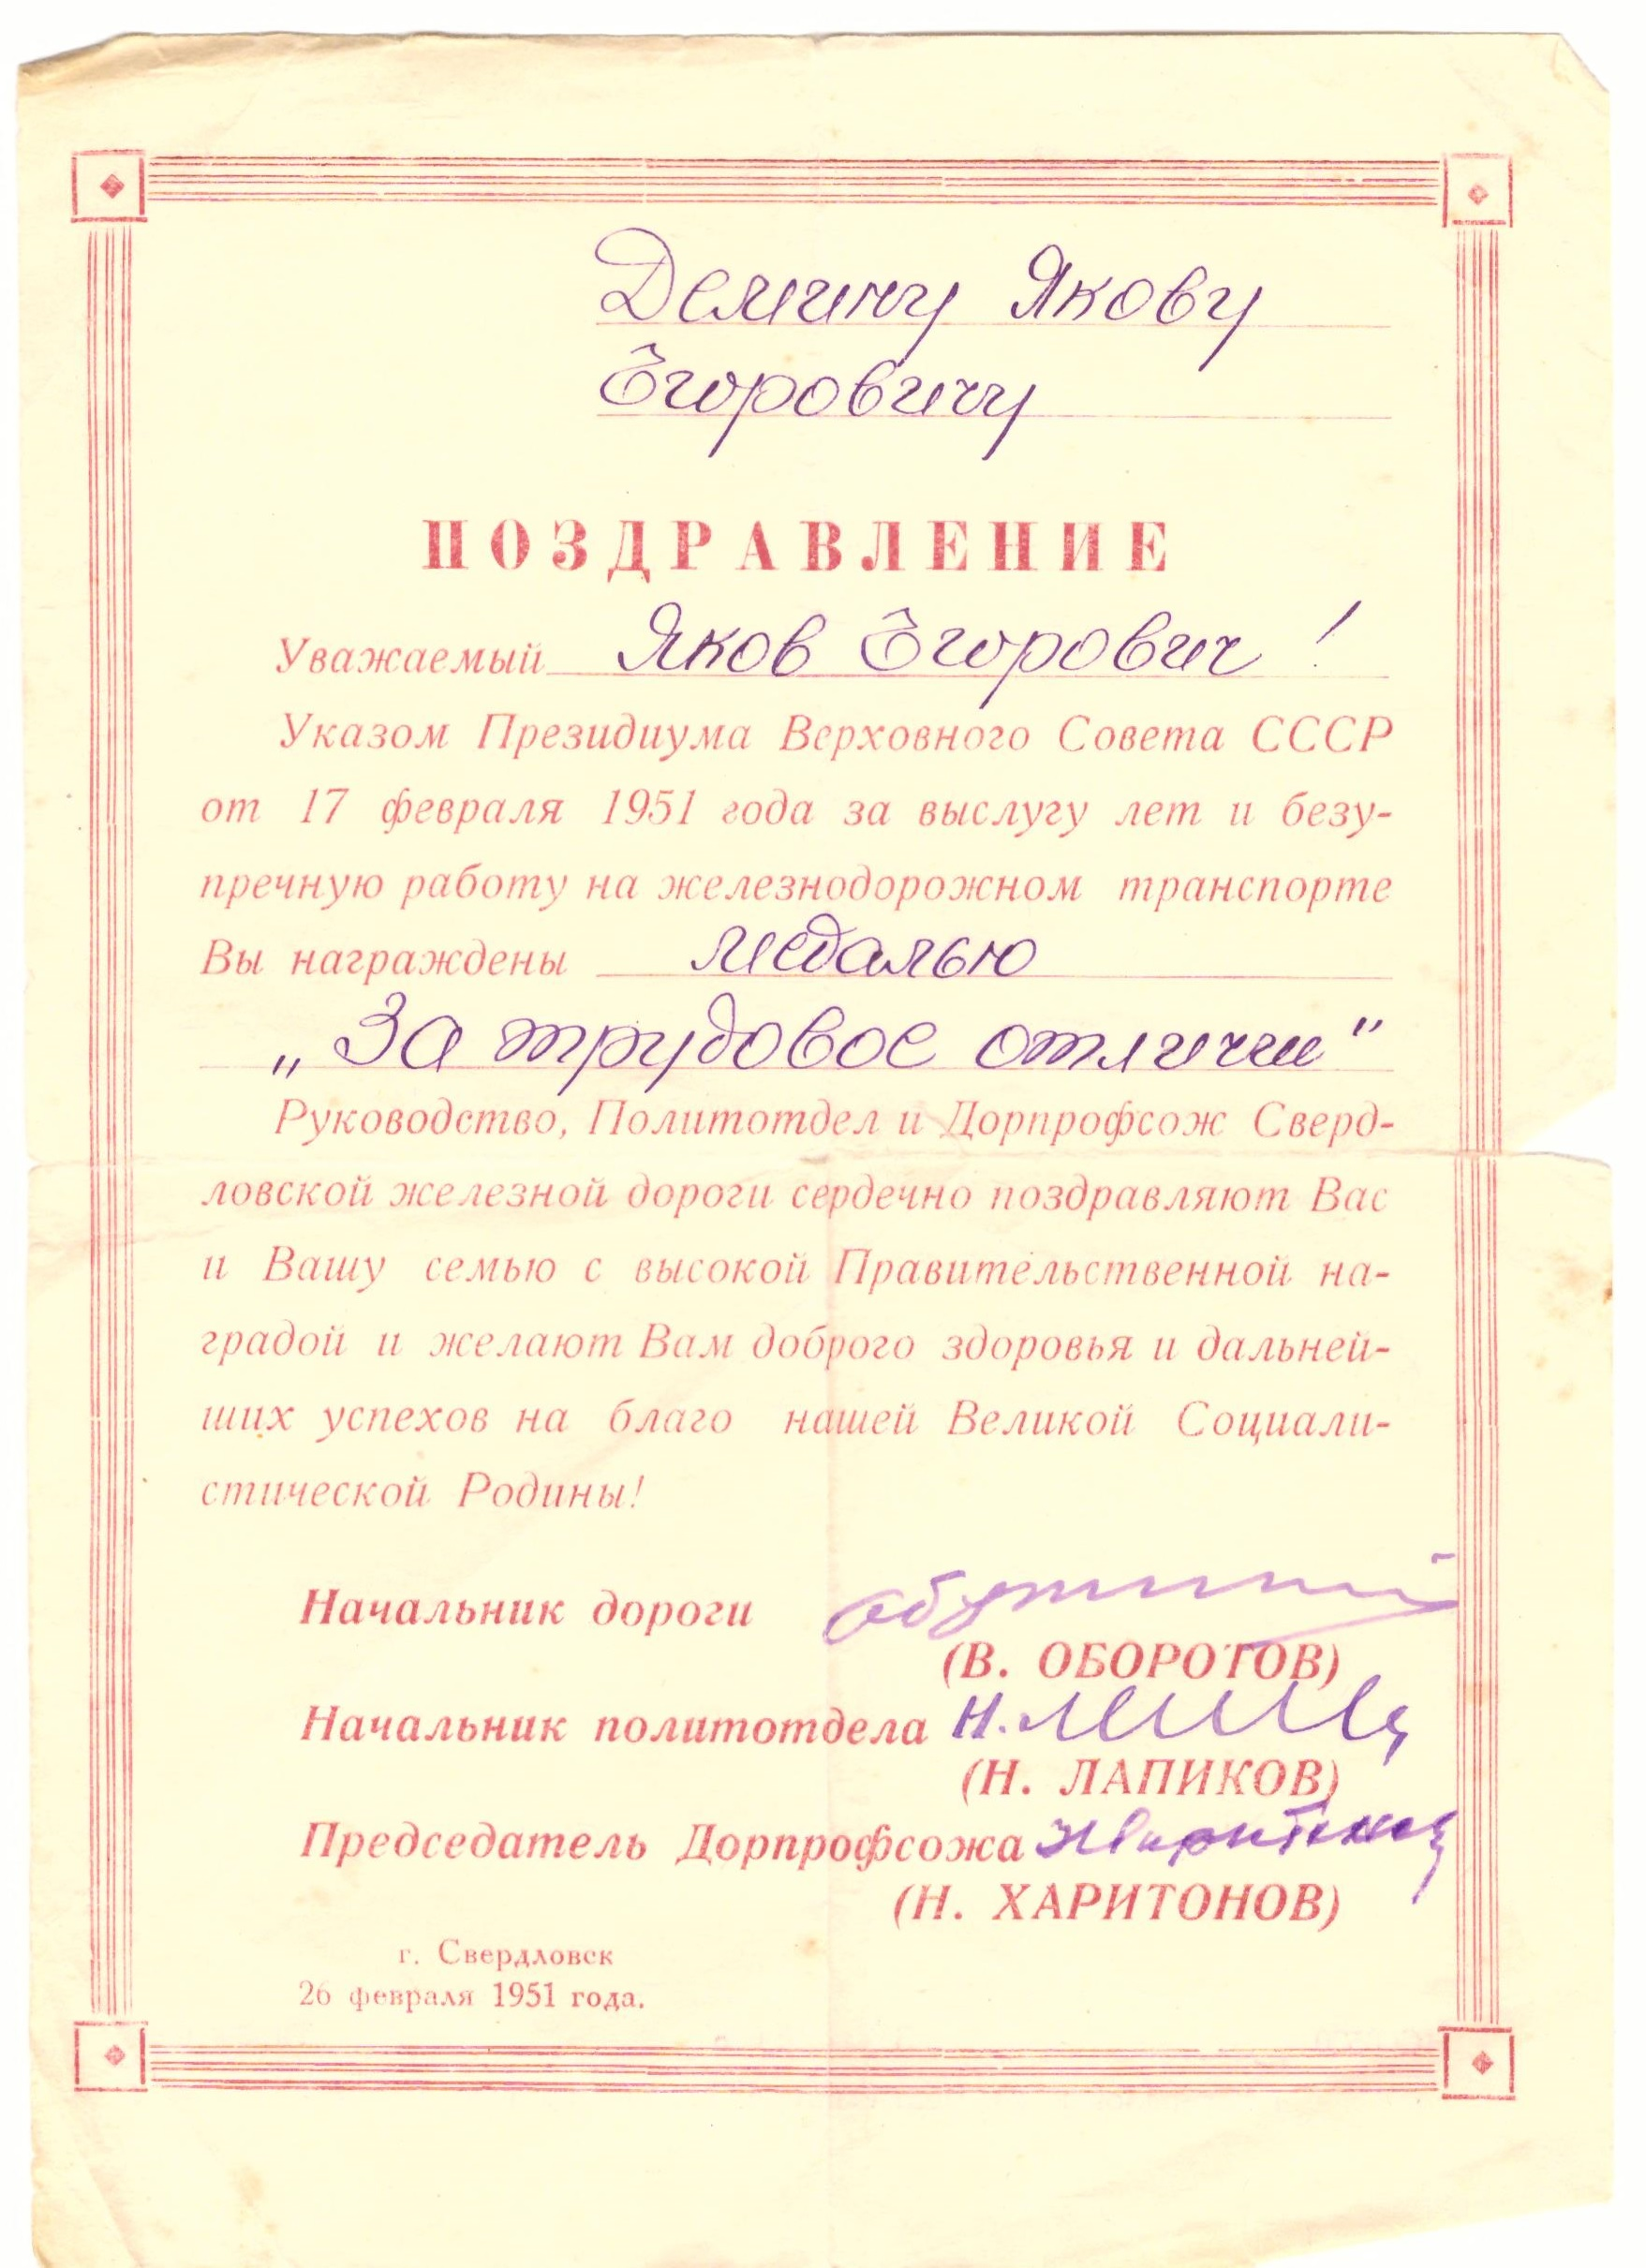 Демину Якову
Егоровичу
ПОЗДРАВЛЕНИЕ
Уважаемый Яков Егорович!
Указом Президиума Верховного Совета СССР
от 17 февраля 1951 года за выслугу лет и безу-
пречную работу на железнодорожном транспорте
Вы награждены медалью
„За трудовое отличии"
Руководство, Политотдел и Дорпрофсож Сверд-
ловской железной дороги сердечно поздравляют Вас
и Вашу семью с высокой Правительственной на-
градой и желают Вам доброго здоровья и дальней-
ших успехов на благо нашей Великой Социали-
стической Родины!
Начальник дороги
(В. ОБОРОТОВ)
Начальник политотдела
(Н. ЛАПИКОВ)
Председатель Дорпрофсожа
(Н. ХАРИТОНОВ)
г. Свердловск
26 февраля 1951 года.